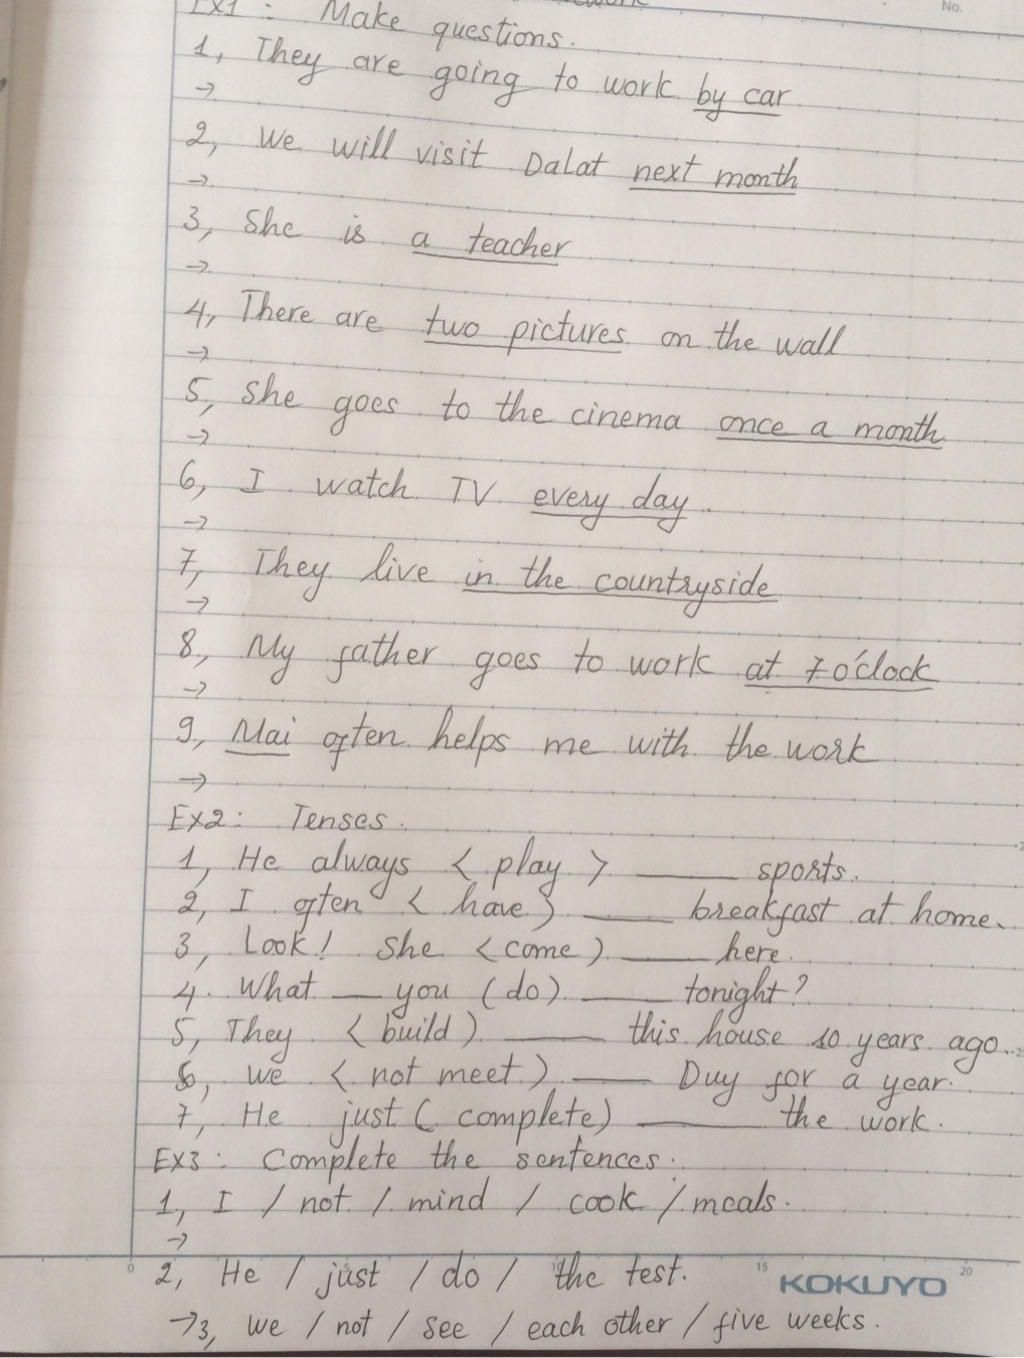 Ex1 : Make questions.
No.
1, They are going to work by car
→
2, We will visit Dalat next month
→
3, She is a teacher
→
4, There are two pictures on the wall
→
5, She goes to the cinema once a month
→
6, I watch TV every day.
→
7, They live in the countryside
→
8, My father goes to work at 7 o'clock
→
9, Mai often helps me with the work
→
Ex2: Tenses.
1, He always < play > ____ sports.
2, I often < have ) ____ breakfast at home.
3, Look! She < come ) ____ here.
4. What __ you (do) ____ tonight?
5, They < build ) ____ this house 10 years ago.
6, We < not meet ) ____ Duy for a year.
7, He just ( complete) ____ the work.
Ex3 : Complete the sentences.
1, I / not / mind / cook / meals.
→
2, He / just / do / the test.
0 15 KOKUYO 20
→3, We / not / see / each other / five weeks.